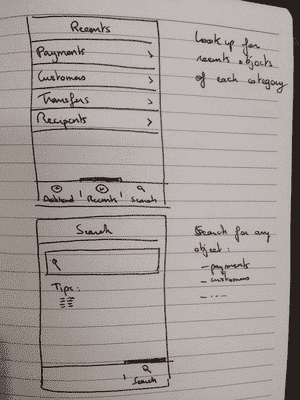 Recents
Payments >
Customers >
Transfers >
Recipients >
Dashboard
Recents
Search
Look up for
recents objects
of each category
Search
Tips:
Search
Search for any
object:
- payments
- customers
- ...